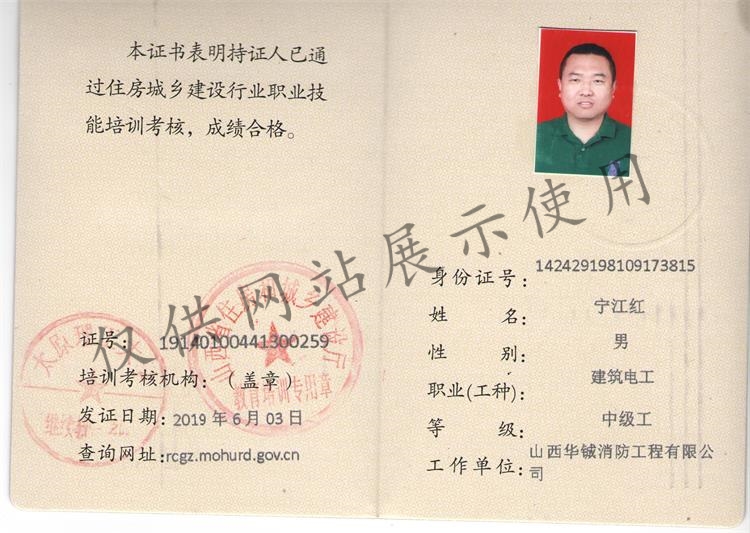 本证书表明持证人已通
过住房城乡建设行业职业技
能培训考核，成绩合格。
证号：19140100441300259
培训考核机构：（盖章）
发证日期：2019 年 6 月 03 日
查询网址:rcgz.mohurd.gov.cn
山西省住房和城乡建设厅
教育培训专用章
身份证号：142429198109173815
姓 名：宁江红
性 别：男
职业(工种)：建筑电工
等 级：中级工
工作单位：山西华铖消防工程有限公
司
仅供网站展示使用